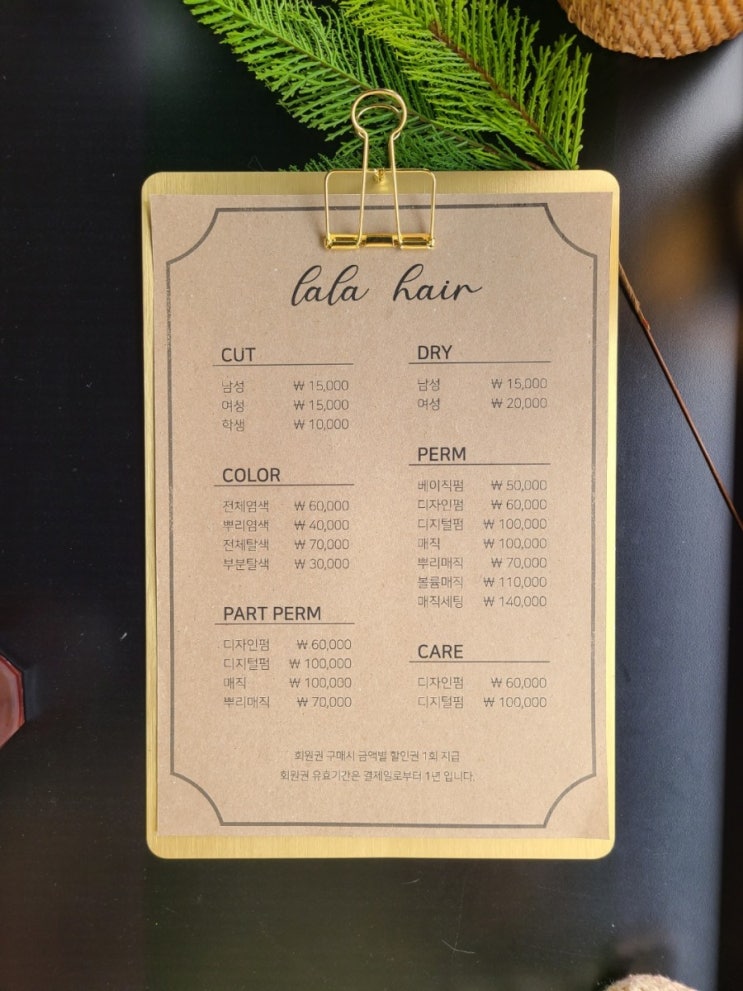 lala hair
CUT
남성 ₩ 15,000
여성 ₩ 15,000
학생 ₩ 10,000
COLOR
전체염색 ₩ 60,000
뿌리염색 ₩ 40,000
전체탈색 ₩ 70,000
부분탈색 ₩ 30,000
PART PERM
디자인펌 ₩ 60,000
디지털펌 ₩ 100,000
매직 ₩ 100,000
뿌리매직 ₩ 70,000
DRY
남성 ₩ 15,000
여성 ₩ 20,000
PERM
베이직펌 ₩ 50,000
디자인펌 ₩ 60,000
디지털펌 ₩ 100,000
매직 ₩ 100,000
뿌리매직 ₩ 70,000
볼륨매직 ₩ 110,000
매직세팅 ₩ 140,000
CARE
디자인펌 ₩ 60,000
디지털펌 ₩ 100,000
회원권 구매시 금액별 할인권 1회 지급
회원권 유효기간은 결제일로부터 1년 입니다.